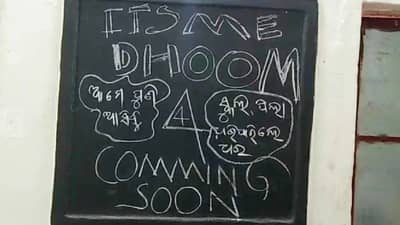 ITS ME
DHOOM
4
ଆମେ ପୁଣି
ଆସିଛୁ
ଧରିପାରିଲେ
ଧର
COMMING
SOON